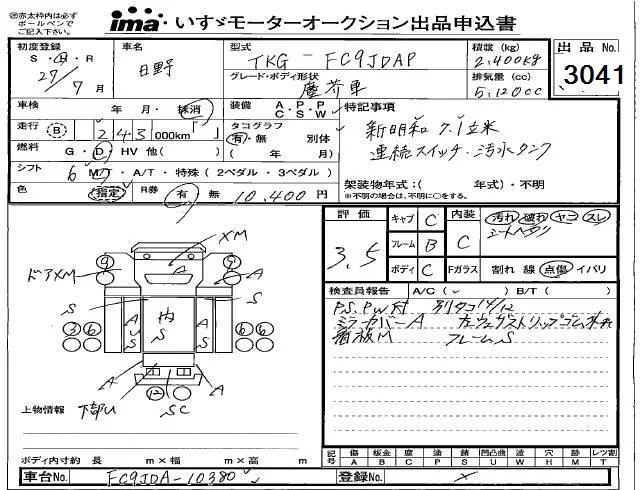 ㊟赤太枠内は必ず
ボールペンで
ご記入下さい。
ima いすゞモーターオークション出品申込書
初度登録
S・H・R
27/7月
車名
日野
型式
TKG-FC9JDAP
グレード・ボディ形状
塵芥車
積載 (kg)
2,400kg
排気量 (cc)
5,120cc
出品 No.
3041
車検 年・月・抹消
装備 A.P.P
C.S.W
走行 B 243 000km「 」
タコグラフ
有・無 別体
( 年 月)
燃料 G・D・HV 他( )
シフト 6 M/T・A/T・特殊 (2ペダル・3ペダル)
色 指定 R券 有 無 10,400円
特記事項
新明和 7.1立米
連続スイッチ・汚水タンク
架装物年式:( 年式)・不明
※不明の場合は、不明に○をする。
評価
3.5
キャブ C
フレーム B
ボディ C
内装 C
汚れ 破れ ヤコ スレ
シートヘタリ
Fガラス 割れ 線 点傷 イバリ
検査員報告 A/C( ) B/T( )
P.S. P.W付 別タコ14/12
ミラーカバーA
看板M フレームS
XM
ドアXM
A
S
S
内
A
S
U
S
3 6
6
A
A
12
下部U
SC
上物情報
ボディ内寸約 長 m×幅 m×高 m
記号
傷 A
板金 B
腐 C
塗 P
錆 S
凹凸曲 U
波 W
穴 H
跡 M
レツ割 T
車台No. FC9JDA-10380
登録No.